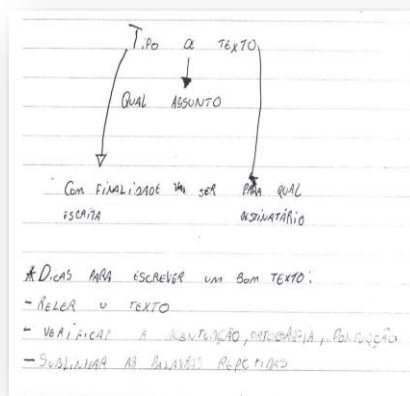 Tipo de TEXTO
QUAL ASSUNTO
Com FINALIDADE vai SER PARA QUAL
ESCRITA DESTINATÁRIO
*DICAS PARA ESCREVER UM BOM TEXTO:
- RELER O TEXTO
- VERIFICAR A ACENTUAÇÃO, ORTOGRAFIA, PONTUAÇÃO
- SUBLINHAR AS PALAVRAS REPETIDAS